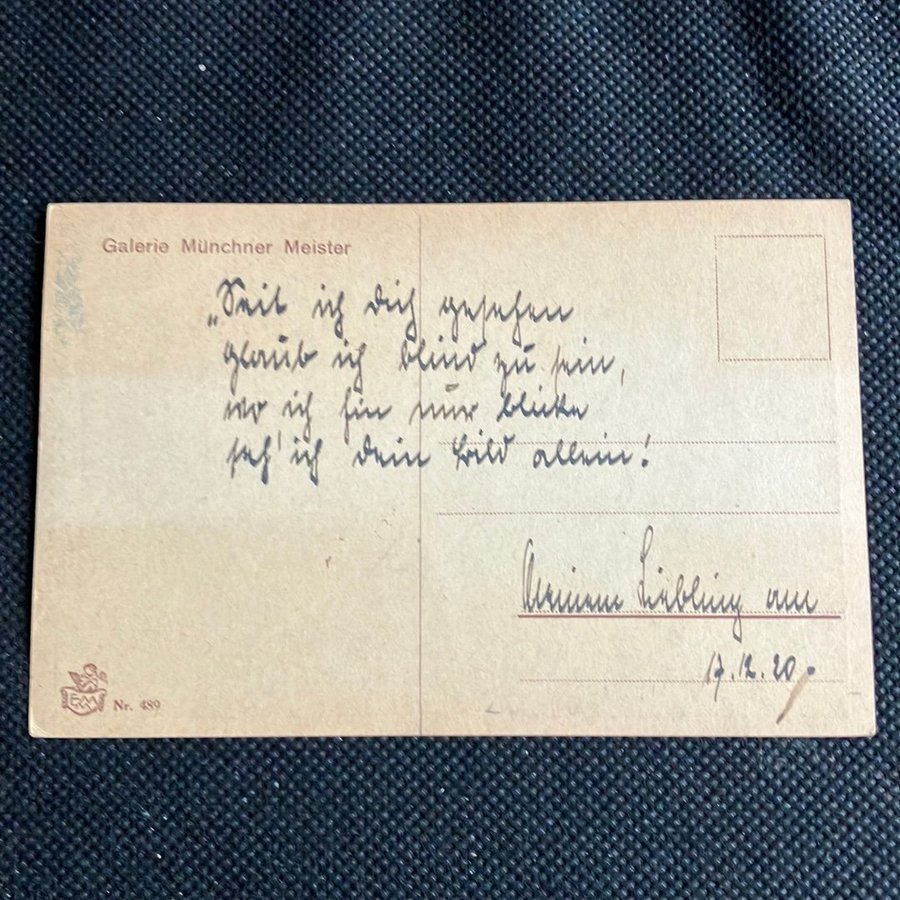 Galerie Münchner Meister
„Seit ich dich gesehen
glaub ich blind zu sein,
wo ich hin nur blicke
seh' ich dein Bild allein!
Meinem Liebling am
17.12.20.
Nr. 489